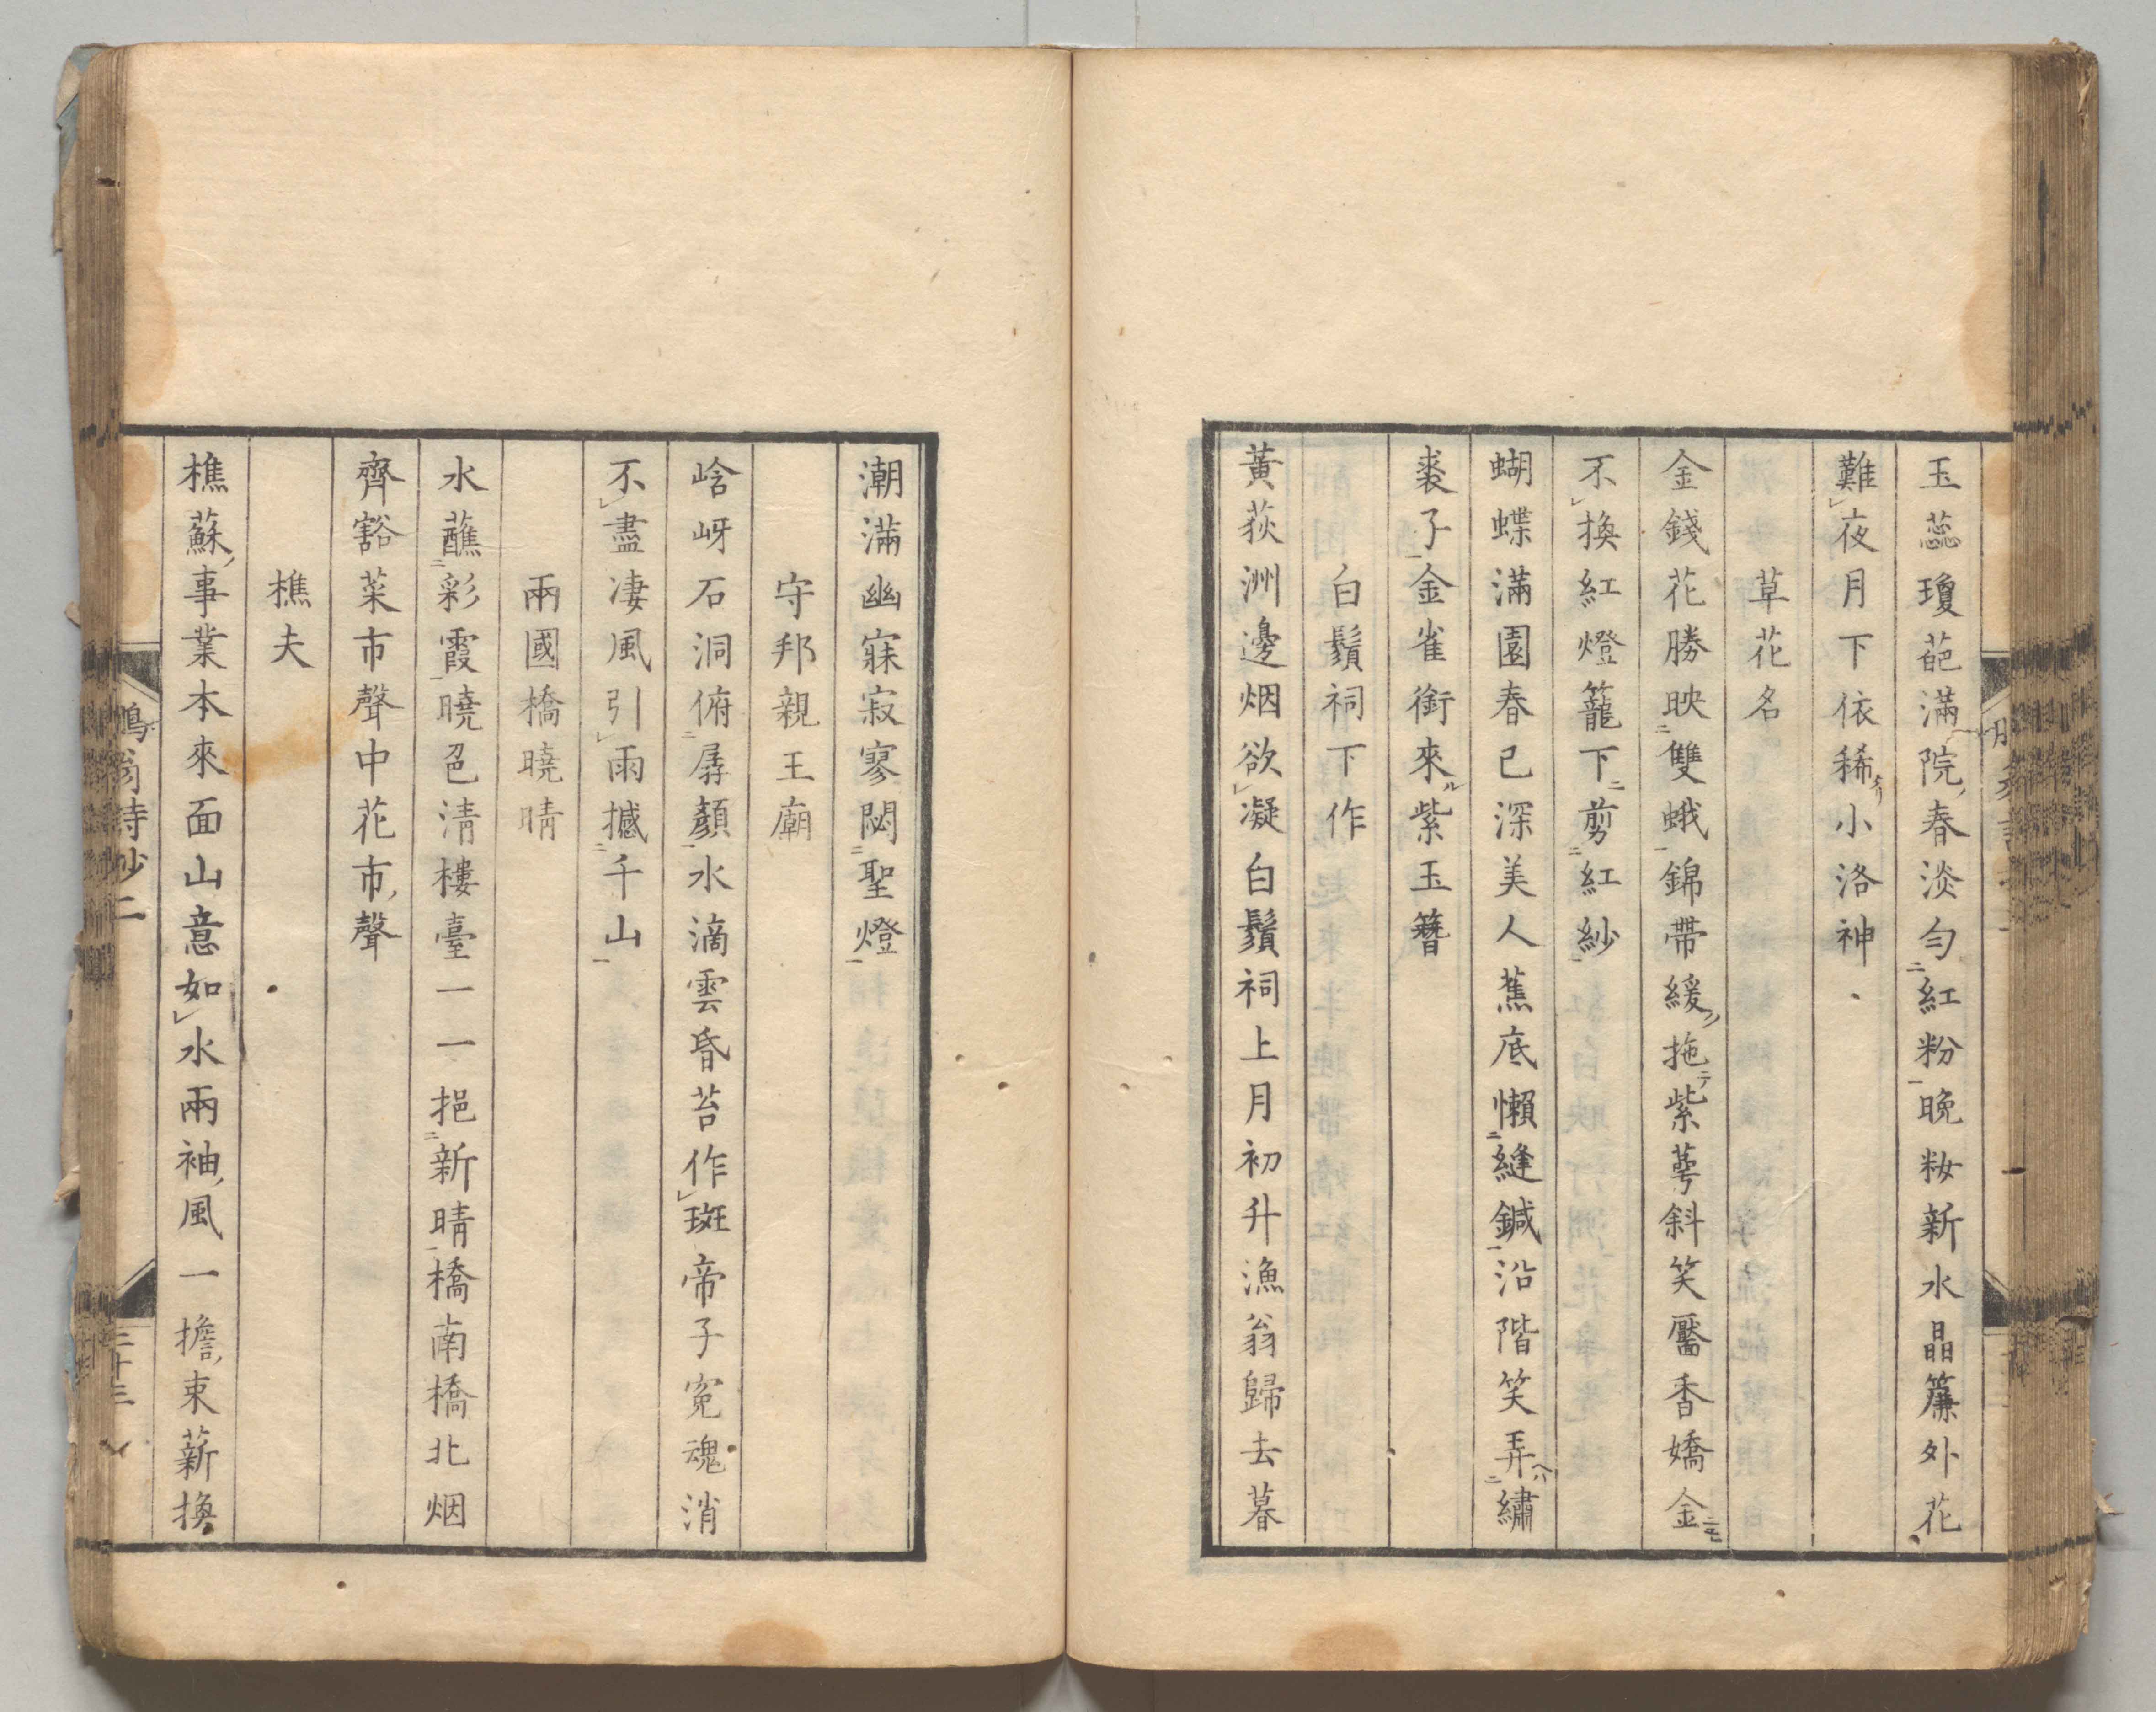 玉蕊瓊葩滿院春淡勻紅粉晩粧新水晶簾外花
難夜月下依稀小洛神
草花名
金錢花勝映雙蛾錦帶緩拖紫萼斜笑靨香嬌金
不換紅燈籠下剪紅紗
蝴蝶滿園春已深美人蕉底懶縫鍼沿階笑弄繡
裘子金雀銜來紫玉簪
白鬚祠下作
黃荻洲邊烟欲凝白鬚祠上月初升漁翁歸去暮
潮滿幽寐寂寥閟聖燈
守邦親王廟
崡岈石洞俯孱顏水滴雲昏苔作斑帝子冤魂消
不盡凄風引雨撼千山
兩國橋曉晴
水蘸彩霞曉色淸樓臺一一挹新晴橋南橋北烟
齊豁菜市聲中花市聲
樵夫
樵蘇事業本來面山意如水兩袖風一擔束薪換
翁詩鈔二
二十三